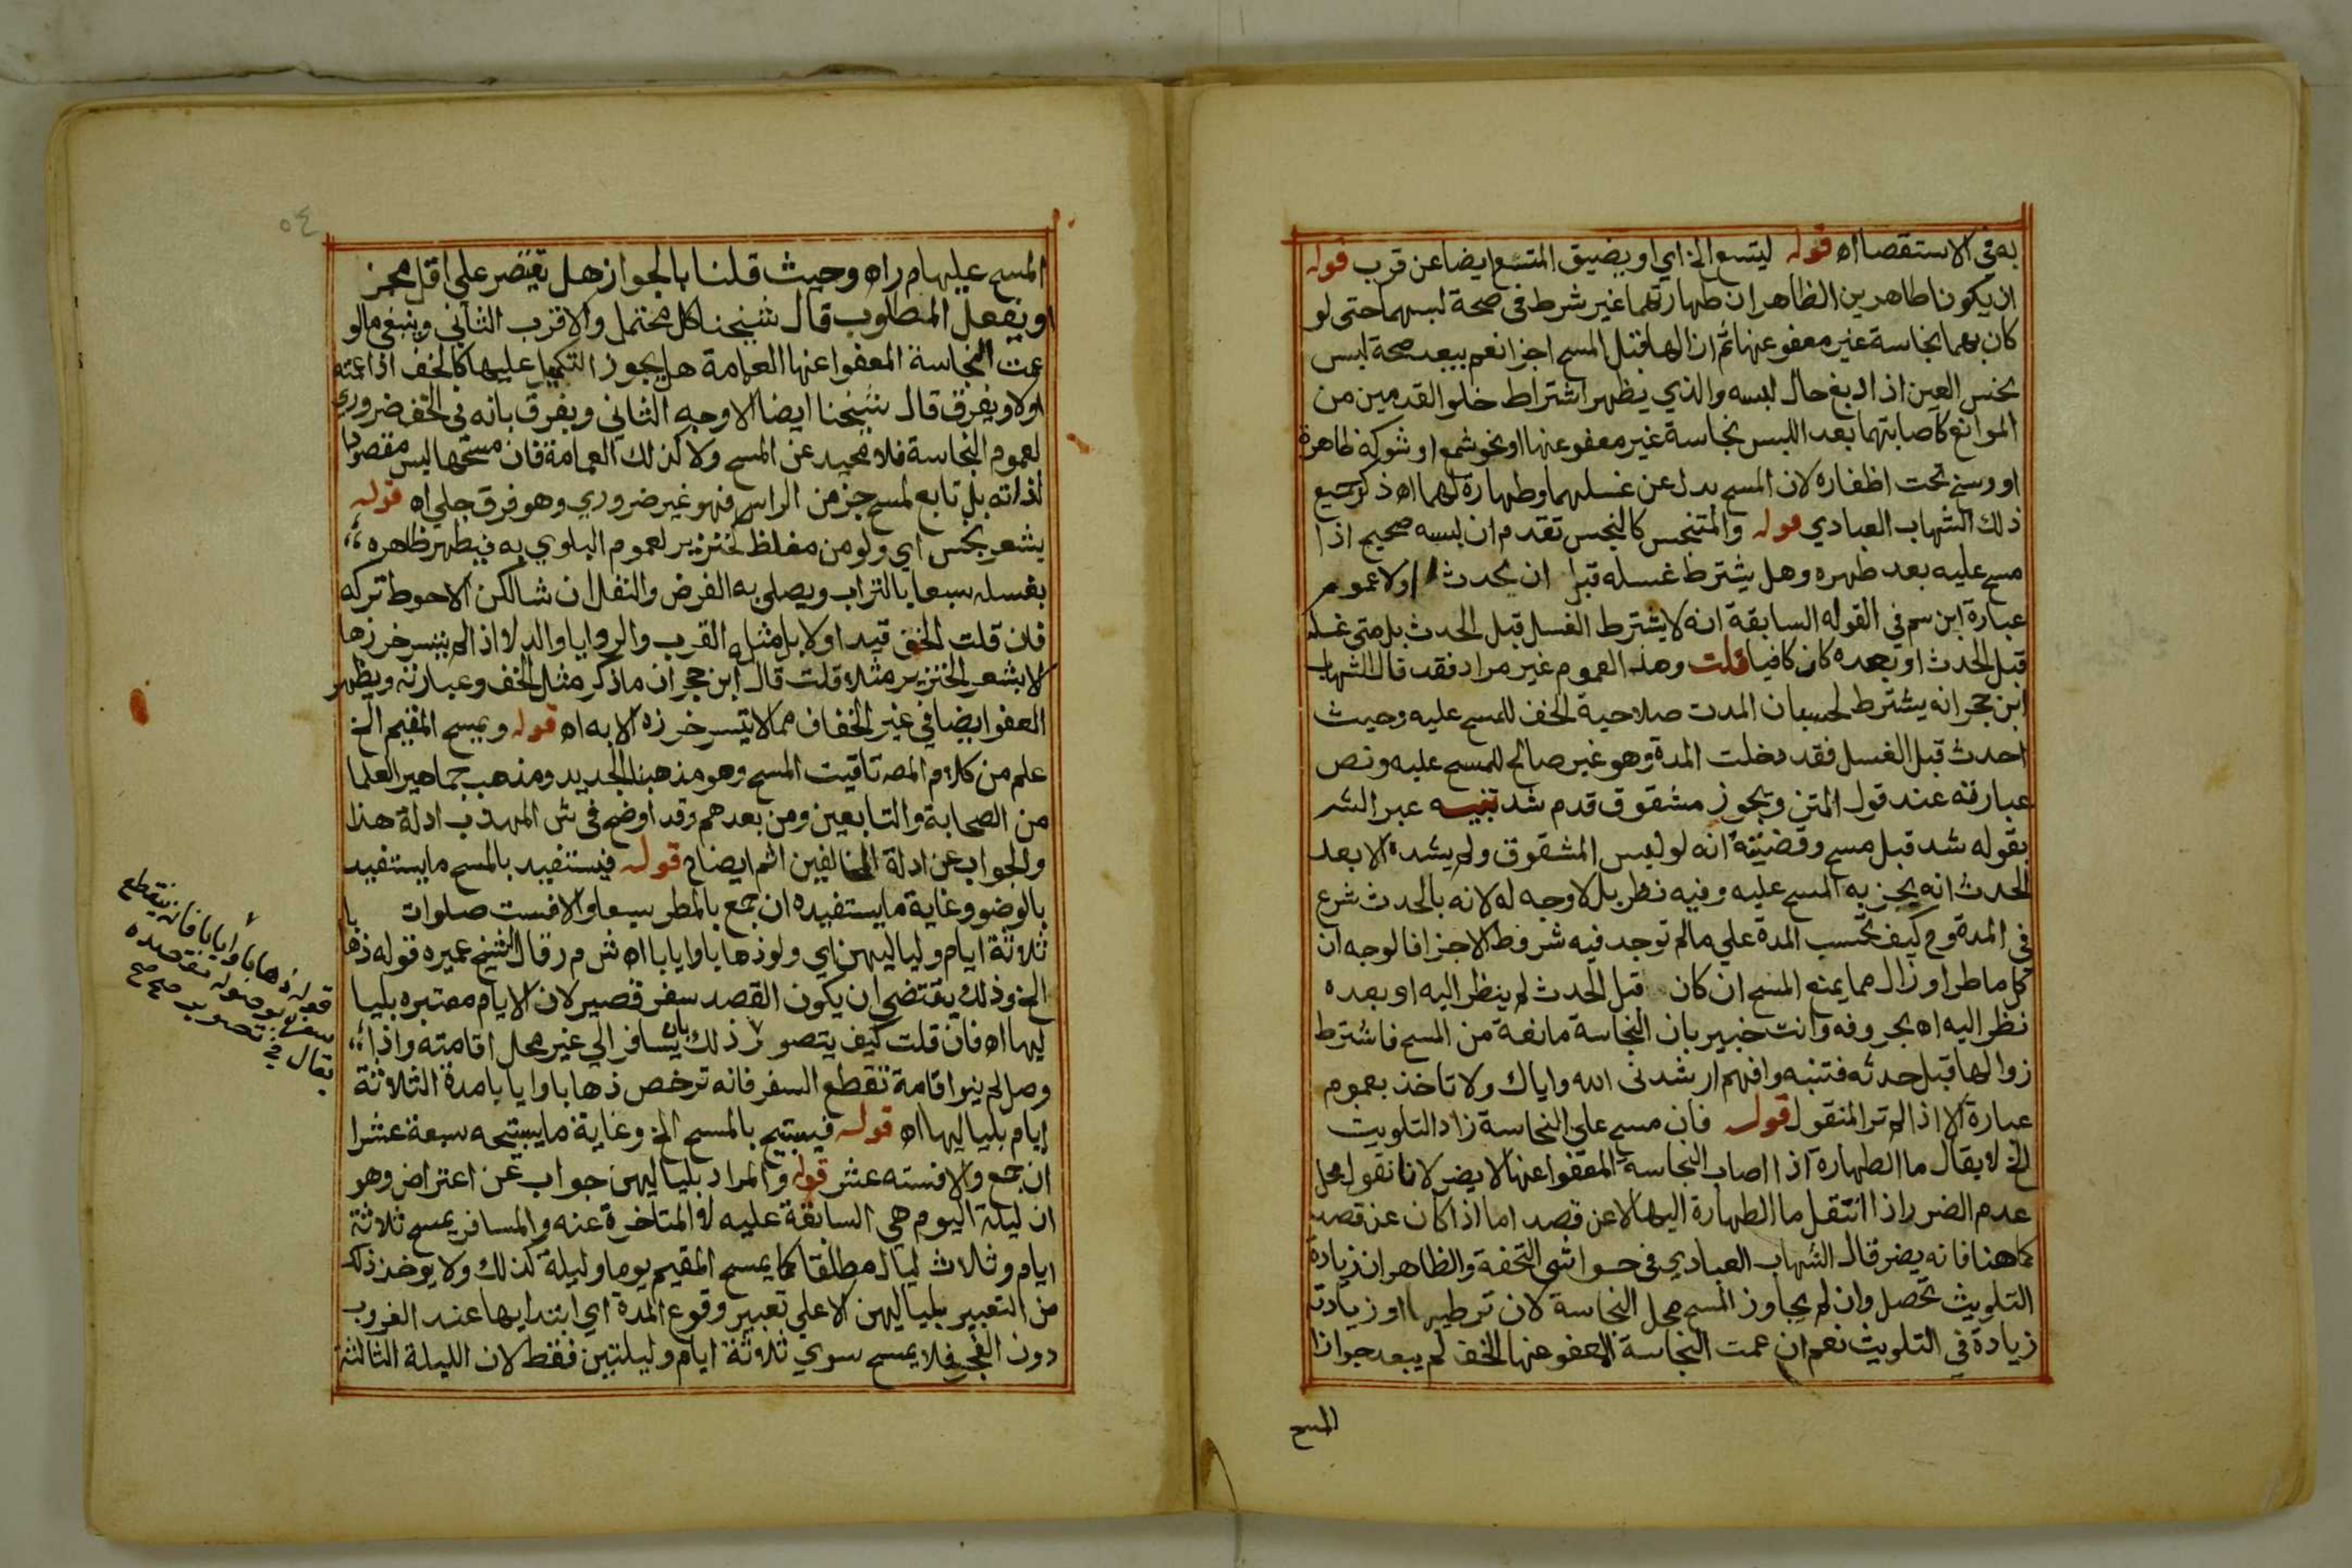 به في الاستقصا اه قوله ليتسع الخ اي او يضيق المتسع ايضا عن قرب قوله
ان يكونا طاهرين الظاهر ان طهارتهما غير شرط في صحة لبسهما حتى لو
كان بهما نجاسة غير معفو عنها ثم ازالها قبل المسح اجزا نعم يبعد صحة لبس
نجس العين اذا دبغ حال لبسه والذي يظهر اشتراط خلو القدمين من
الموانع كاصابتهما بعد اللبس نجاسة غير معفو عنها او نحو شمع او شوكة ظاهرة
او وسخ تحت اظفاره لان المسح بدل عن غسلهما وطهارة لهما اه ذكر جميع
ذلك الشهاب العبادي قوله والمتنجس كالنجس تقدم ان لبسه صحيح اذا
مسح عليه بعد طهره وهل يشترط غسله قبل ان يحدث اولا عموم
عبارة ابن سم في القوله السابقة انه لا يشترط الغسل قبل الحدث بل متى غسله
قبل الحدث او بعده كان كافيا قلت وهذا العموم غير مراد فقد قال الشهاب
ابن حجر انه يشترط لحسبان المدت صلاحية الخف للمسح عليه وحيث
احدث قبل الغسل فقد دخلت المدة وهو غير صالح للمسح عليه ونص
عبارته عند قول المتن ويجوز مشقوق قدم شد تنبيه عبر الشر
بقوله شد قبل مسح وقضيته انه لو لبس المشقوق ولم يشده الا بعد
الحدث انه يجزيه المسح عليه وفيه نظر بل لا وجه له لانه بالحدث شرع
في المدة وح كيف تحسب المدة علي مالم توجد فيه شروط الاجزا فالوجه ان
كل ما طرا وزال مما يمنع المسح ان كان قبل الحدث لم ينظر اليه او بعده
نظر اليه اه بحروفه وانت خبير بان النجاسة مانعة من المسح فاشترط
زوالها قبل حدثه فتنبه وافهم ارشدني الله واياك ولا تاخذ بعموم
عبارة الا اذا لم تر المنقول قوله فان مسح على النجاسة زاد التلويث
الخ لا يقال ما الطهارة اذا اصاب النجاسة المعفو عنها لا يضر لانا نقول محل
عدم الضرر اذا انتقل ما الطهارة اليها لا عن قصد اما اذا كان عن قصد
كما هنا فانه يضر قال الشهاب العبادي في حواشي التحفة والظاهر ان زيادة
التلويث تحصل وان لم يجاوز المسح محل النجاسة لان ترطيبها او زيادته
زيادة في التلويث نعم ان عمت النجاسة المعفو عنها الخف لم يبعد جواز
المسح
٥٤
المسح عليه اه م ر اه وحيث قلنا بالجواز هل يقتصر علي اقل مجز
او يفعل المطلوب قال شيخنا كل محتمل والاقرب الثاني وينبغي ما لو
عمت النجاسة المعفوا عنها العمامة هل يجوز التكميل عليها كالخف اذا عمته
اولا ويفرق قال شيخنا ايضا الاوجه الثاني ويفرق بانه في الخف ضروري
لعموم النجاسة فلا محيد عن المسح ولا كذلك العمامة فان مسحها ليس مقصودا
لذاته بل تابع لمسح جز من الراس فهو غير ضروري وهو فرق جلي اه قوله
بشعر نجس اي ولو من مغلظ كخنزير لعموم البلوي به فيطهر ظاهره
بغسله سبعا بالتراب ويصلي به الفرض والنفل ان شا لكن الاحوط تركه
فان قلت الخف قيد او لا بل مثله القرب والروايا والدلا اذا لم يتيسر خرزها
الا بشعر الخنزير مثلا قلت قال ابن حجر ان ما ذكر مثل الخف وعبارته ويظهر
العفو ايضا في غير الخفاف مما لا يتيسر خرزه الا به اه قوله ويمسح المقيم الخ
علم من كلام المصه تاقيت المسح وهو مذهبنا الجديد ومذهب جماهير العلما
من الصحابة والتابعين ومن بعدهم وقد اوضح في ش المهذب ادلة هذا
والجواب عن ادلة المخالفين اثم ايضا ح قوله فيستفيد بالمسح ما يستفيد
بالوضو وغاية ما يستفيده ان جمع بالمطر سبعا والا فست صلوات
ثلاثة ايام ولياليهن اي ولو ذهابا وايابا اه ش م ر قال الشيخ عميره قوله ذهابا
الخ وذلك يقتضي ان يكون القصد سفر قصير لان الايام معتبره بليا
ليها اه فان قلت كيف يتصور ذلك بان يسافر الي غير محل اقامته واذا
وصل لم ينو اقامة تقطع السفر فانه ترخص ذهابا وايابا مدة الثلاثة
ايام بلياليها اه قوله فيستبيح بالمسح الخ وغاية ما يستبيحه سبعة عشرا
ان جمع والا فسته عشر قوله والمراد بلياليهن جواب عن اعتراض وهو
ان ليلة اليوم هي السابقة عليه لا المتاخرة عنه والمسافر يمسح ثلاثة
ايام وثلاث ليال مطلقا كما يمسح المقيم يوما وليلة كذلك ولا يوخذ ذلك
من التعبير بلياليهن الا علي تعبير وقوع المدة اي ابتدايها عند الغروب
دون الفجر فلا يمسح سوي ثلاثة ايام وليلتين فقط لان الليلة الثالثة
قوله ذهابا وايابا فانه ينقطع
سفره بوصوله مقصده
يقال في تصوير صح صح